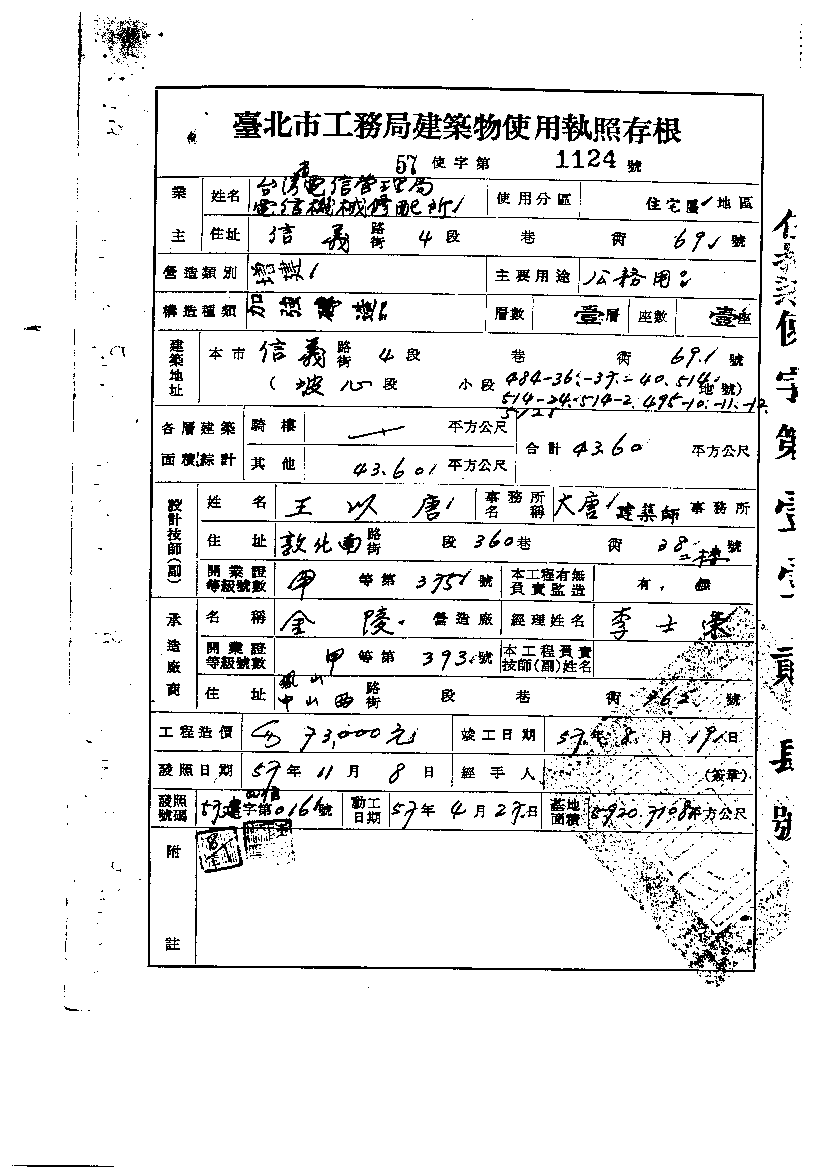 臺北市工務局建築物使用執照存根
57 使字第 1124 號
業主 姓名 台灣電信管理局 電信機械修配所 使用分區 住宅區 地區
住址 信義 路街 4 段 巷 街 691 號
營造類別 增建 主要用途 公務用
構造種類 加強磚造 層數 壹層 座數 壹座
建築地址 本市 信義 路街 4 段 巷 街 691 號
( 坡心 段 小段 484-36.-37.-40.514. 地號)
514-24.-514-2.495-10.-11.-12.
各層建築面積綜計 騎樓 平方公尺 合計 43.60 平方公尺
其他 43.60 平方公尺
設計技師(副) 姓名 王以唐 事務所名稱 大唐建築師 事務所
住址 敦化南 路街 段 360 巷 街 38 二樓 號
開業證等級號數 甲 等第 375 號 本工程有無負責監造 有,無
承造廠商 名稱 金陵 營造廠 經理姓名 李士
開業證等級號數 甲 等第 393 號 本工程負責技師(副)姓名
住址 鳳山 中山西 路街 段 巷 街 號
工程造價 73,000元 竣工日期 57年8月19日
發照日期 57年11月8日 經手人 (簽章)
發照號碼 57建 字第016 號 動工日期 57年4月27日 基地面積 平方公尺
附註
使字第壹壹貳肆號